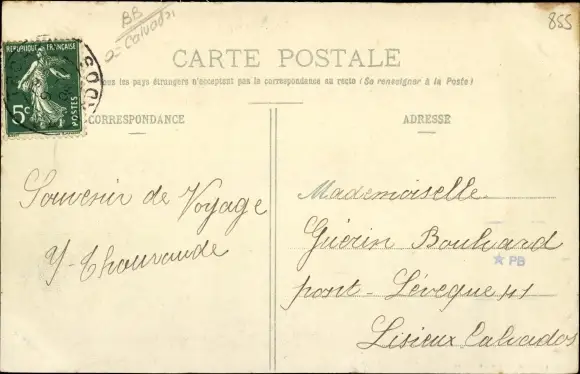 BB
= Calvados
855
RÉPUBLIQUE FRANÇAISE
5c
POSTES
CARTE POSTALE
les pays étrangers n'acceptent pas la correspondance au recto (Se renseigner à la Poste)
CORRESPONDANCE
ADRESSE
Souvenir de Voyage
Mademoiselle
Guérin Boulvard
★ PB
pont-Lévêque 41
Lisieux Calvados